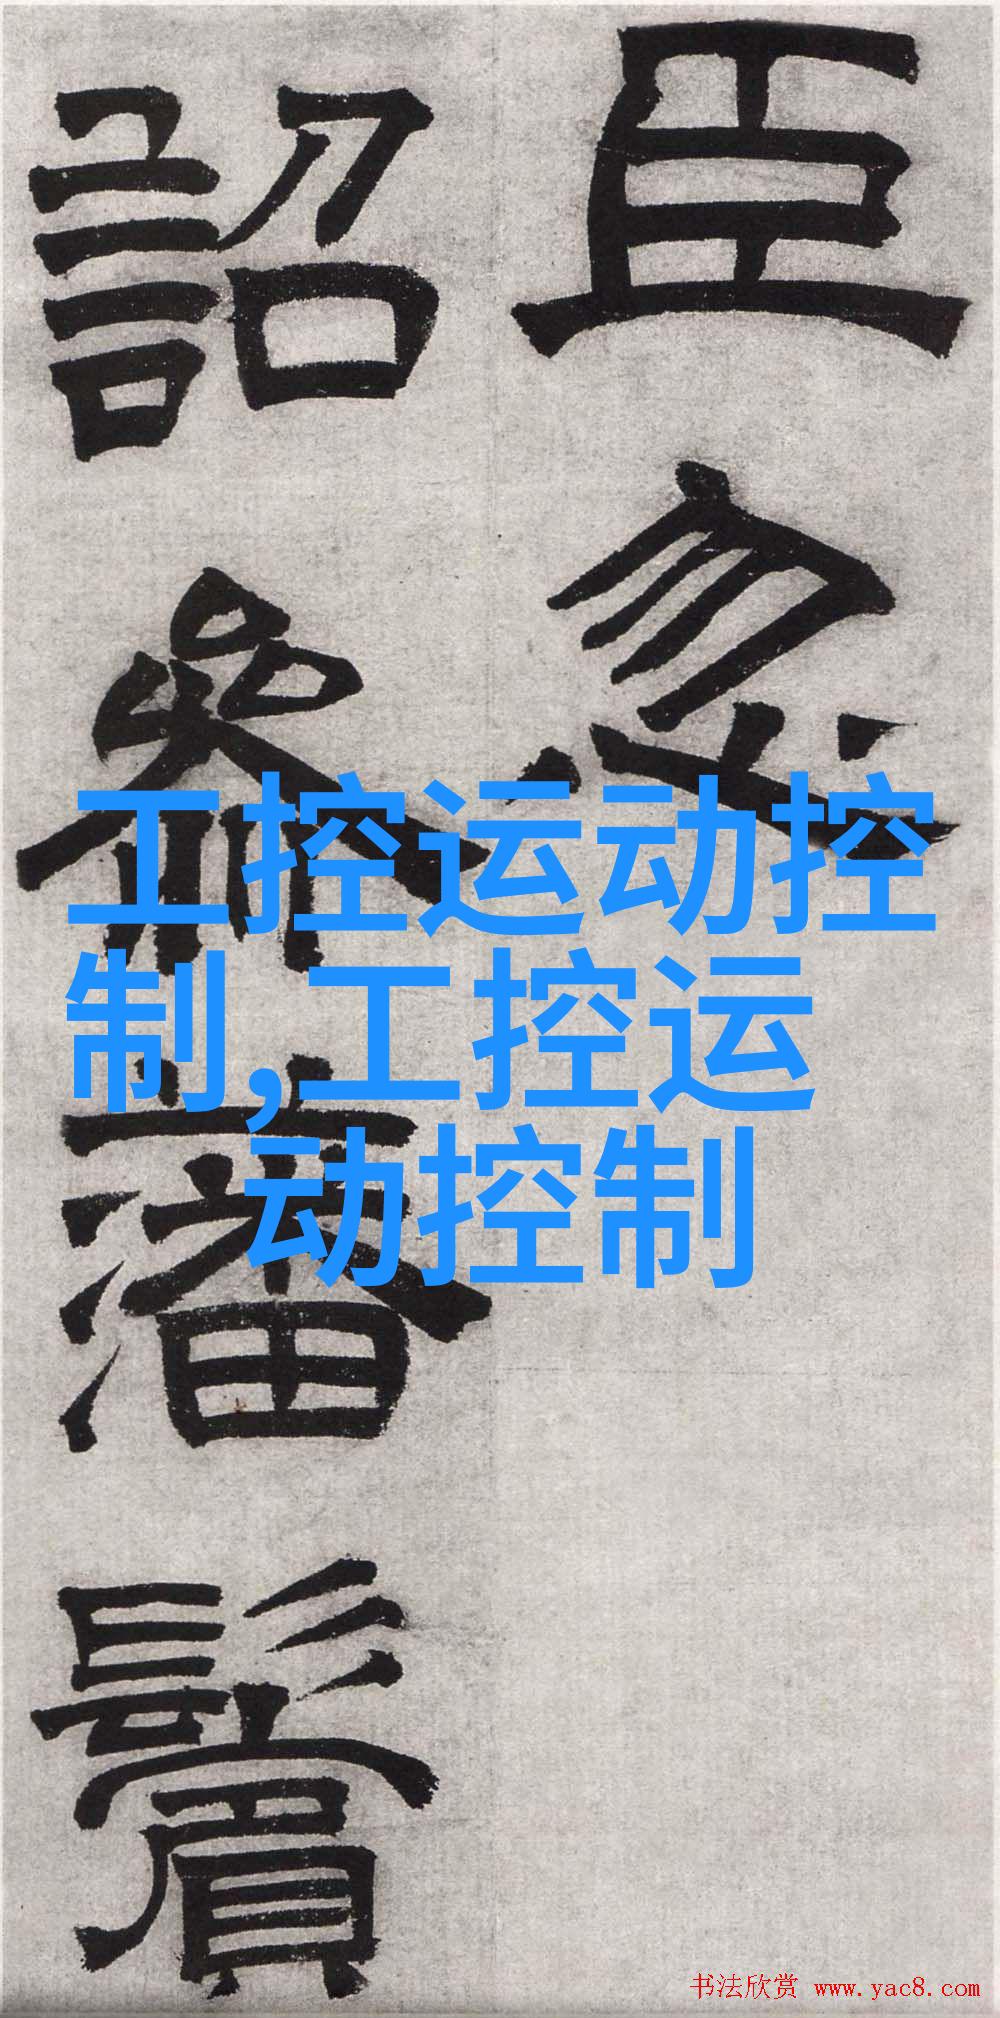 臣忽
詔參藩鬢
工控运动控
制,工控运
动控制
书法欣赏 www.yac8.com